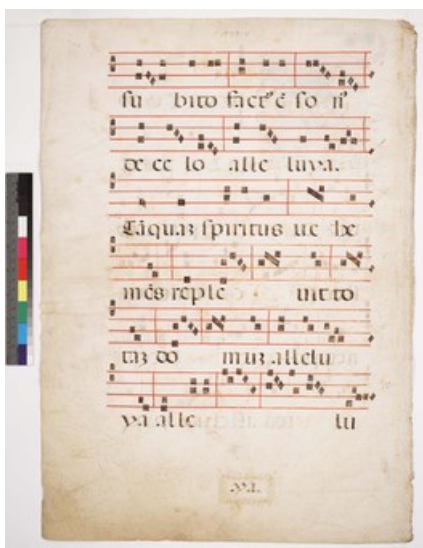 su bito fact᷒ ē so n᷒
de ce lo alle luya.
Tāquaz spiritus ue he
mēs reple uit to
taz do muz allelu
ya alle lu
ya.